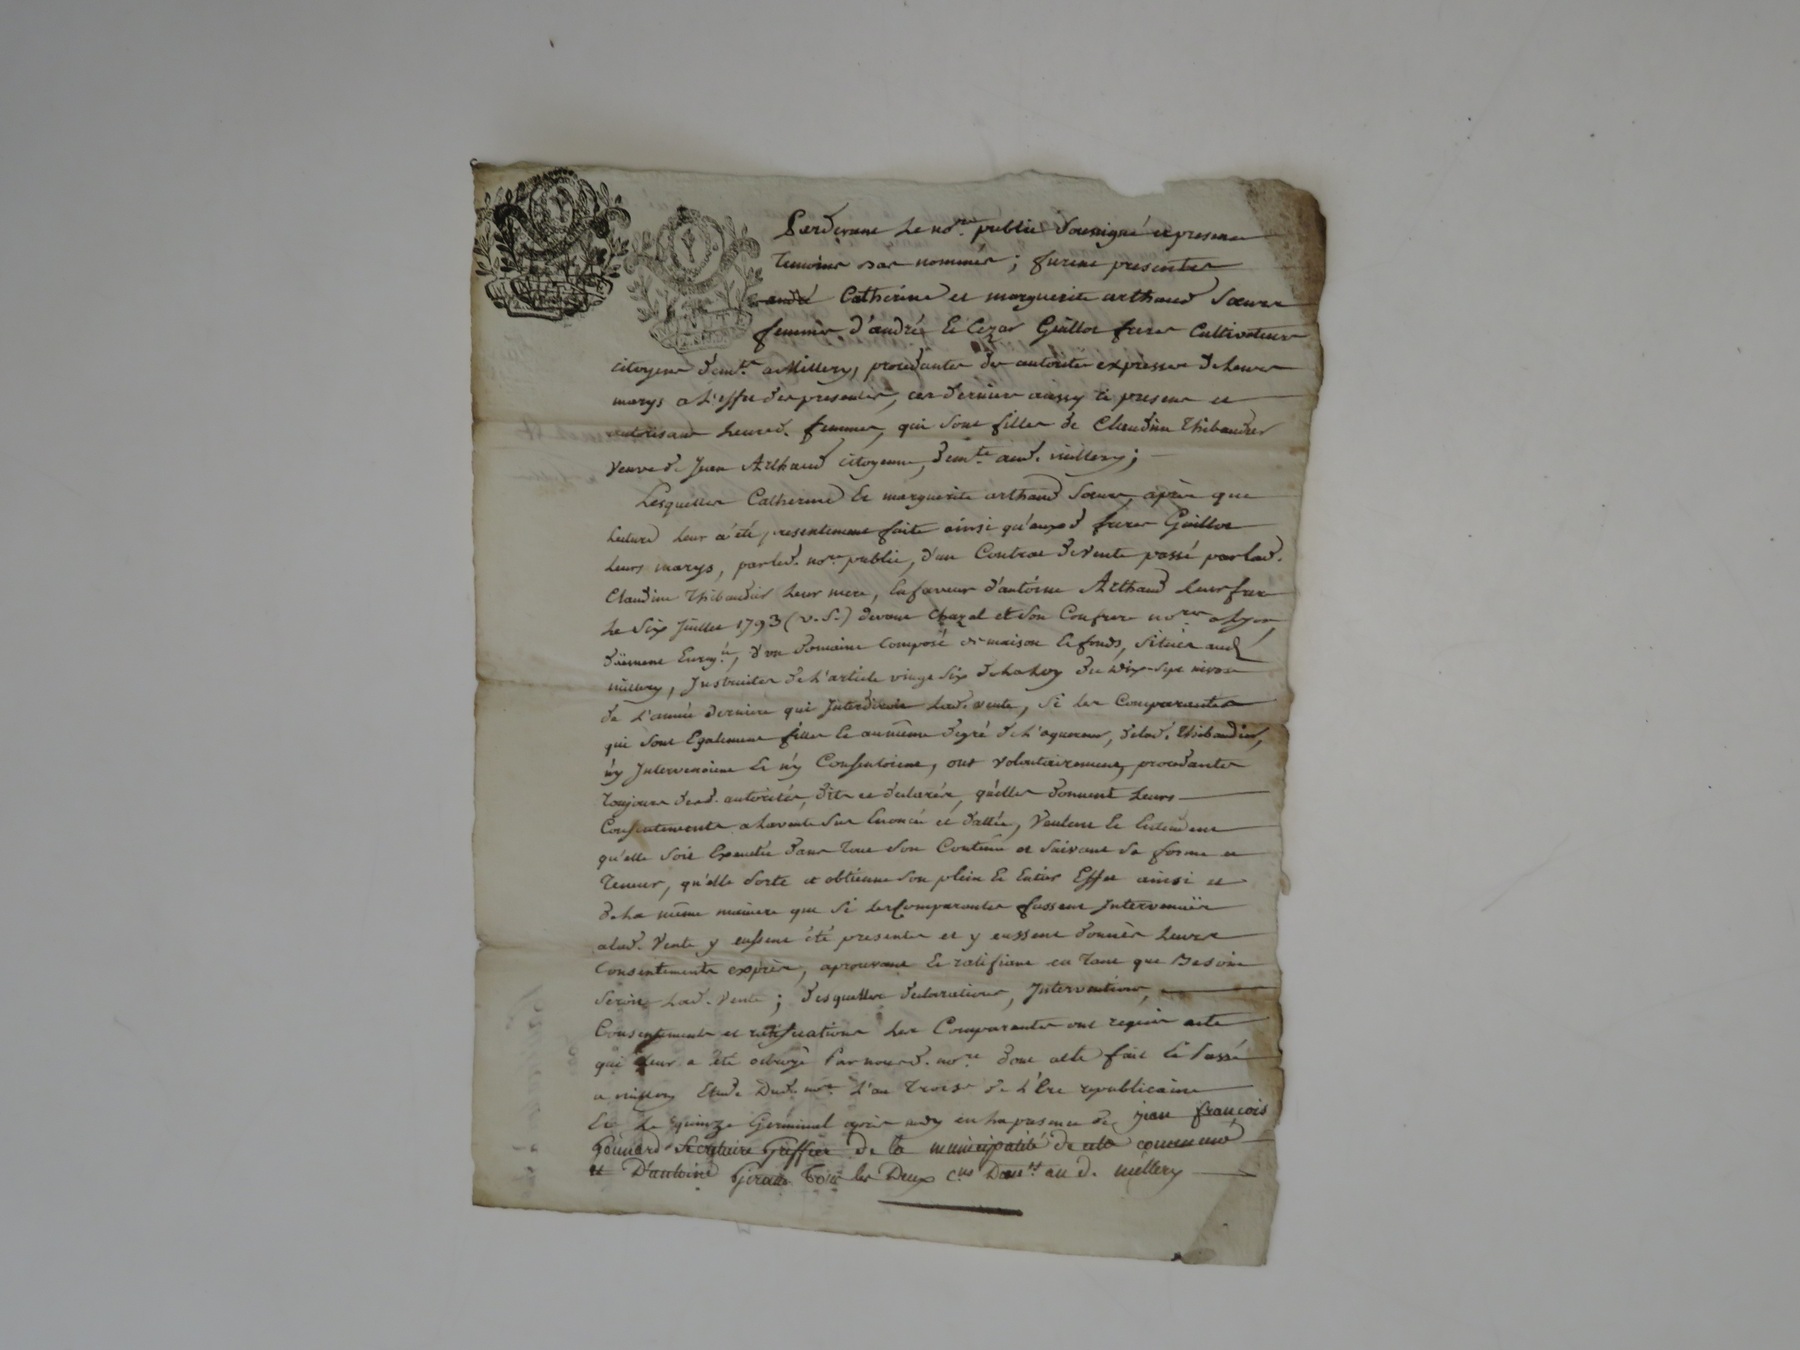 Pardevant Le no.re public Soussigné et presents
Temoins bas nommés ; furent presentes
andré Catherine et marguerite arthaud Sœurs
femmes d'andré & Cezar Guillot freres Cultivateurs
citoyens dem.ts a Millery, procedantes de autorite expresse de Leurs
marys a L'effet des presentes, ces derniers aussy ici presens et
autorisant Leursd. femmes, qui sont filles de Claudine Thibaudier
veuve de Jean Arthaud citoyenne, dem.te aud. millery ;
Lesquelles Catherine & marguerite arthaud Sœurs, après que
Lecture Leur a été, presentement faite ainsi qu'auxd freres Guillot
Leurs marys, par led. no.re public, d'un Contrat de vente passé par lad.
Claudine Thibaudier Leur mere, En faveur d'antoine Arthaud Leur frere
Le Six Juillet 1793 (v. S.) devant Chazal et son Confrere no.res a Lyon,
düement Enrg.é, d'un domaine composé de maison & fonds, situés aud
millery, Instruites de L'article vingt six de La Loy du Dix-Sept nivose
de L'année derniere qui Interdiroit Lad. vente, Si les Comparantes
qui sont Egalement filles & au même degré de L'aquereur, de lad. Thibaudier,
n'y Intervenoient & n'y Consentoient, ont volontairement, procedantes
Toujours desd. autorités, dit et déclaré, qu'elles donnent Leurs
Consentements a La vente Sus Enoncé et dattée, Veulent & Entendent
qu'elle soit Executée dans Tout Son Contenu et Suivant Sa forme et
Teneur, qu'elle Sorte et obtienne Son plein & Entier Effet ainsi et
de La même maniere que Si Les Comparantes fussent Intervenües
a lad. Vente y eussent été presentes et y eussent donnés Leurs
Consentements exprès, aprouvant & ratifiant en Tant que Besoin
Seroit Lad. Vente ; desquelles déclarations, Interventions,
Consentements et ratifications Les Comparantes ont requis acte
qui Leur a été octroyé Par nousd. no.re dont acte fait & Passé
a millery Etude Dud. no.re L'an Trois.e de L'Ere republicaine
Et Le quinze Germinal après midy en La presence de jean françois
Goinard Secretaire Greffier de la municipalité de cette commune
et D'antoine Girard Tous les Deux c.ns Dem.ts au d. millery